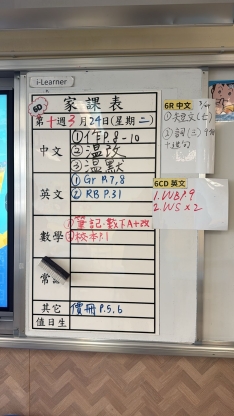 i-Learner
家課表
第十週3月24日(星期二)
中文
①作P.8-10
②溫改
③溫默
英文
① Gr P.7,8
② RB P.31
數學
①筆記、數下A+改
②校本P.1
常
其它
價冊 P.5,6
值日生
6R 中文
6CD 英文
1. WB P.9
2. WS x 2